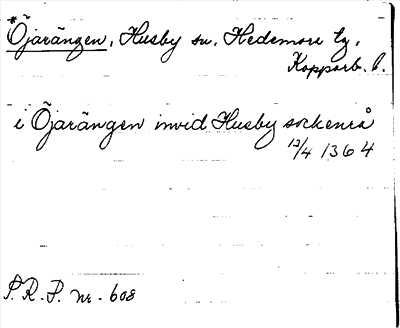 *Öjarängen, Husby sn. Hedemora tg.
Kopparb. l.
i Öjarängen invid Husby sockenrå
12/4 1364
P.R.P. nr. 608